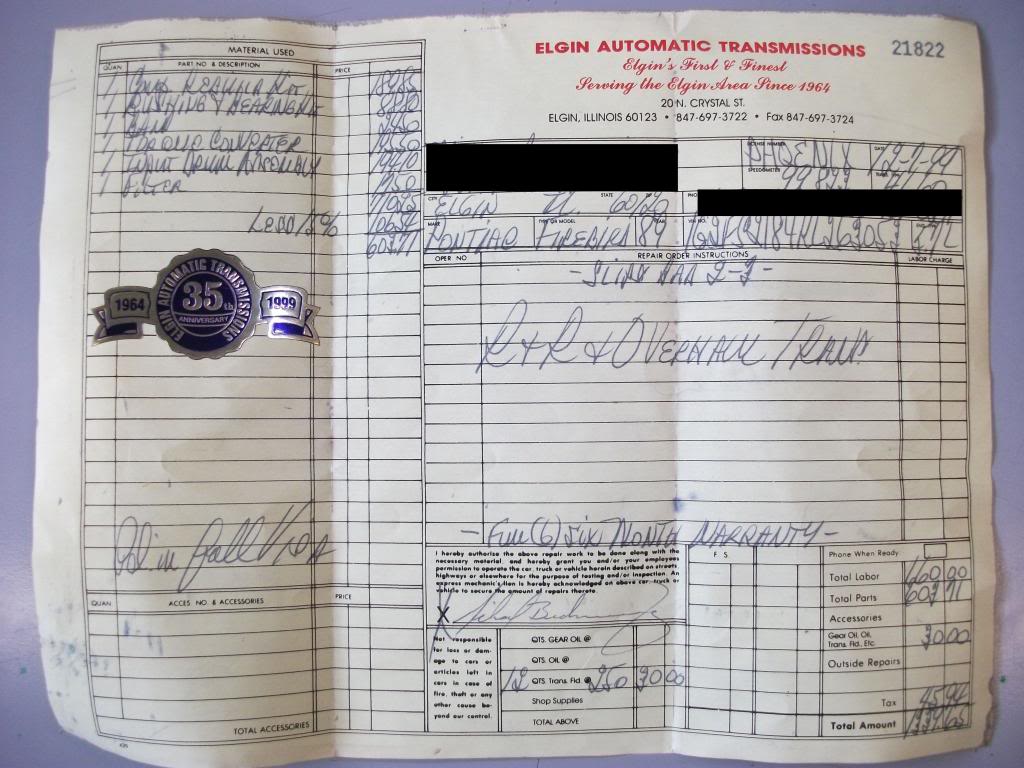 MATERIAL USED
QUAN
PART NO & DESCRIPTION
PRICE
1
1 BUSHING & BEARING KIT
1 BAND
1 TORQUE CONVERTER
1 INPUT DRUM ASSEMBLY
1 FILTER
LESS 15%
607.71
ELGIN AUTOMATIC TRANSMISSIONS
21822
Elgin's First & Finest
Serving the Elgin Area Since 1964
20 N. CRYSTAL ST.
ELGIN, ILLINOIS 60123 • 847-697-3722 • Fax 847-697-3724
LICENSE NUMBER
PHOENIX
DATE
12-7-99
SPEEDOMETER
CITY
ELGIN
STATE
IL
ZIP
60120
MAKE
PONTIAC
TYPE OR MODEL
FIREBIRD
YEAR
89
OPER NO
REPAIR ORDER INSTRUCTIONS
LABOR CHARGE
- SLIPS BAD 2-3 -
R + R & OVERHAUL TRANS
35th
ANNIVERSARY
ELGIN AUTOMATIC TRANSMISSIONS
1964
1999
- FULL (6) SIX MONTH WARRANTY -
I hereby authorize the above repair work to be done along with the
necessary material, and hereby grant you and/or your employees
permission to operate the car, truck or vehicle herein described on streets,
highways or elsewhere for the purpose of testing and/or inspection. An
express mechanic's lien is hereby acknowledged on above car, truck or
vehicle to secure the amount of repairs thereto.
X
Not responsible
for loss or dam-
age to cars or
articles left in
cars in case of
fire, theft or any
other cause be-
yond our control.
QTS. GEAR OIL @
QTS. OIL @
12 QTS. Trans. Fld. @ 2.50 30.00
Shop Supplies
TOTAL ABOVE
F. S.
Phone When Ready
Total Labor 660.00
Total Parts 607.71
Accessories
Gear Oil, Oil,
Trans. Fld., Etc. 30.00
Outside Repairs
Tax 45.94
Total Amount
QUAN
ACCES. NO. & ACCESSORIES
PRICE
TOTAL ACCESSORIES